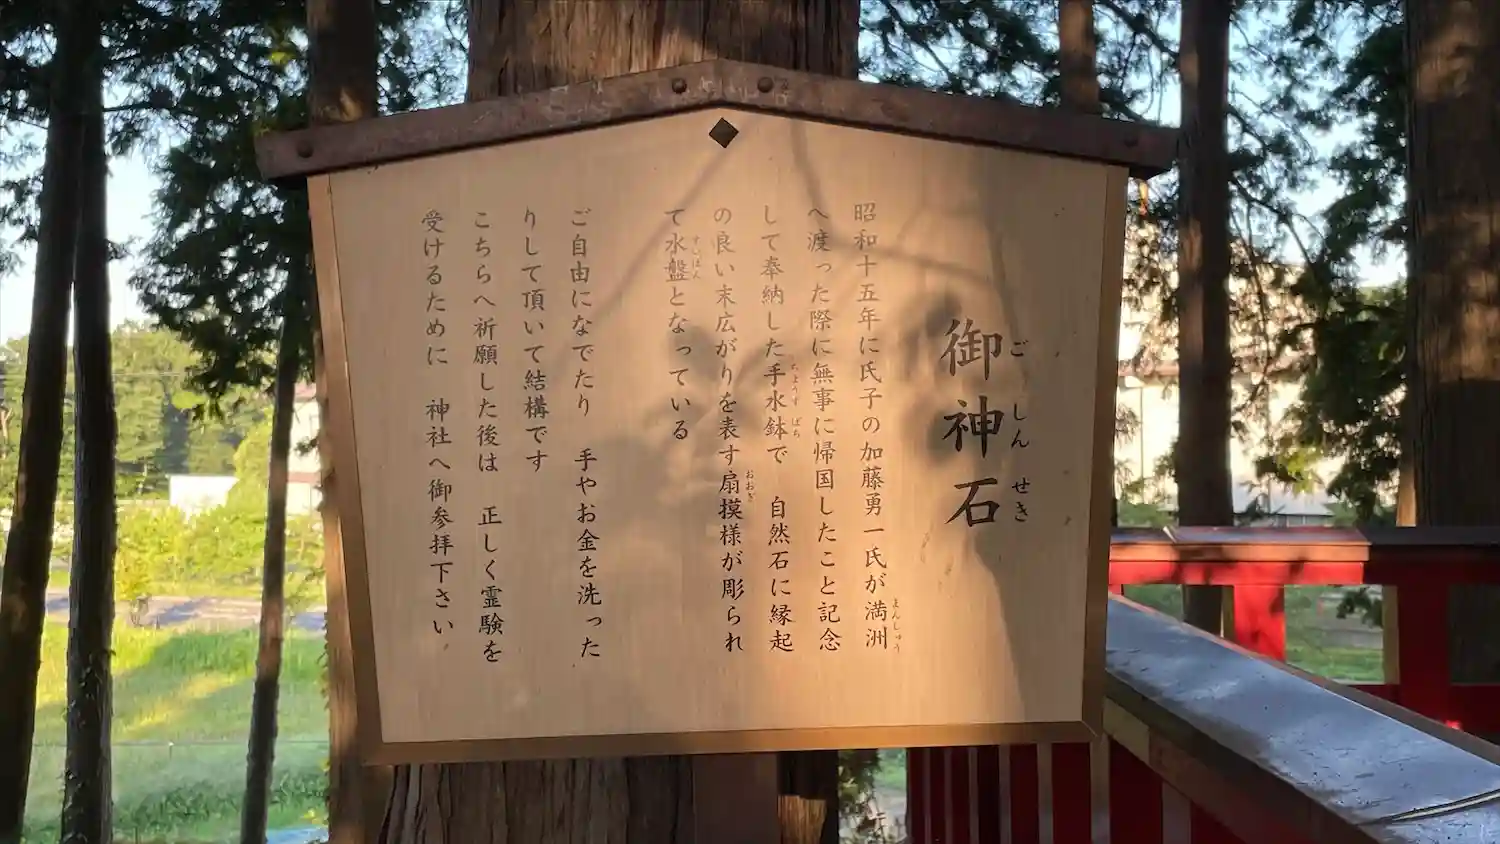 御神石
ごしんせき
昭和十五年に氏子の加藤勇一氏が満洲
まんしゅう
へ渡った際に無事に帰国したこと記念
して奉納した手水鉢で 自然石に縁起
ちょうず ばち
の良い末広がりを表す扇模様が彫られ
おおぎ
て水盤となっている
すいばん
ご自由になでたり 手やお金を洗った
りして頂いて結構です
こちらへ祈願した後は 正しく霊験を
受けるために 神社へ御参拝下さい